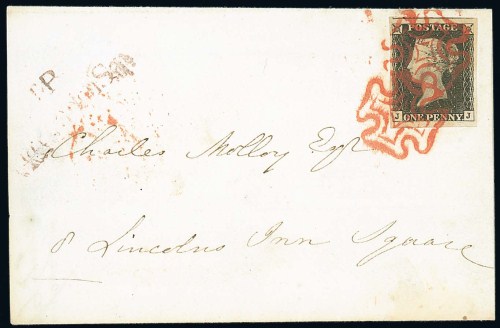 POSTAGE
J J
ONE PENNY
P
Charles Molloy Esqr
8 Lincolns Inn Square